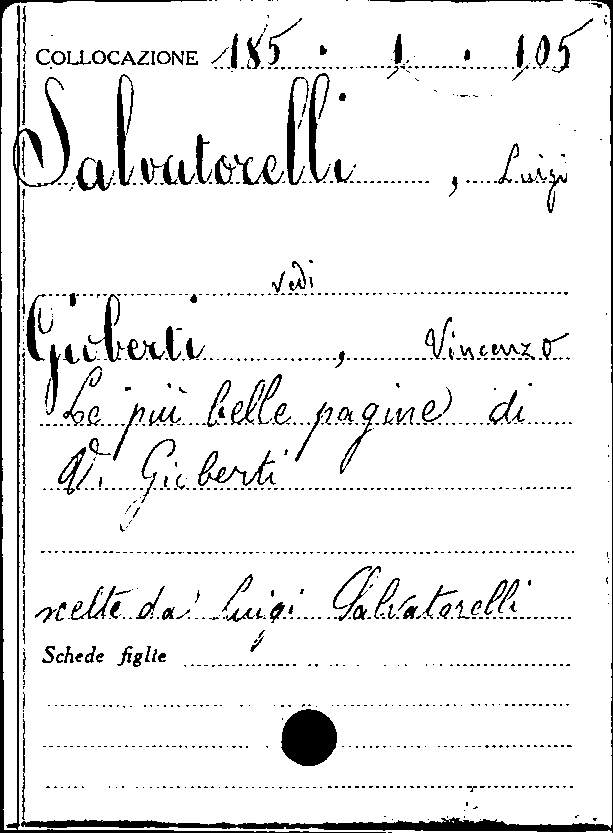 COLLOCAZIONE 185 . 1 . 105
Salvatorelli , Luigi
vedi
Gioberti , Vincenzo
Le più belle pagine di
V. Gioberti
scelte da Luigi Salvatorelli
Schede figlie